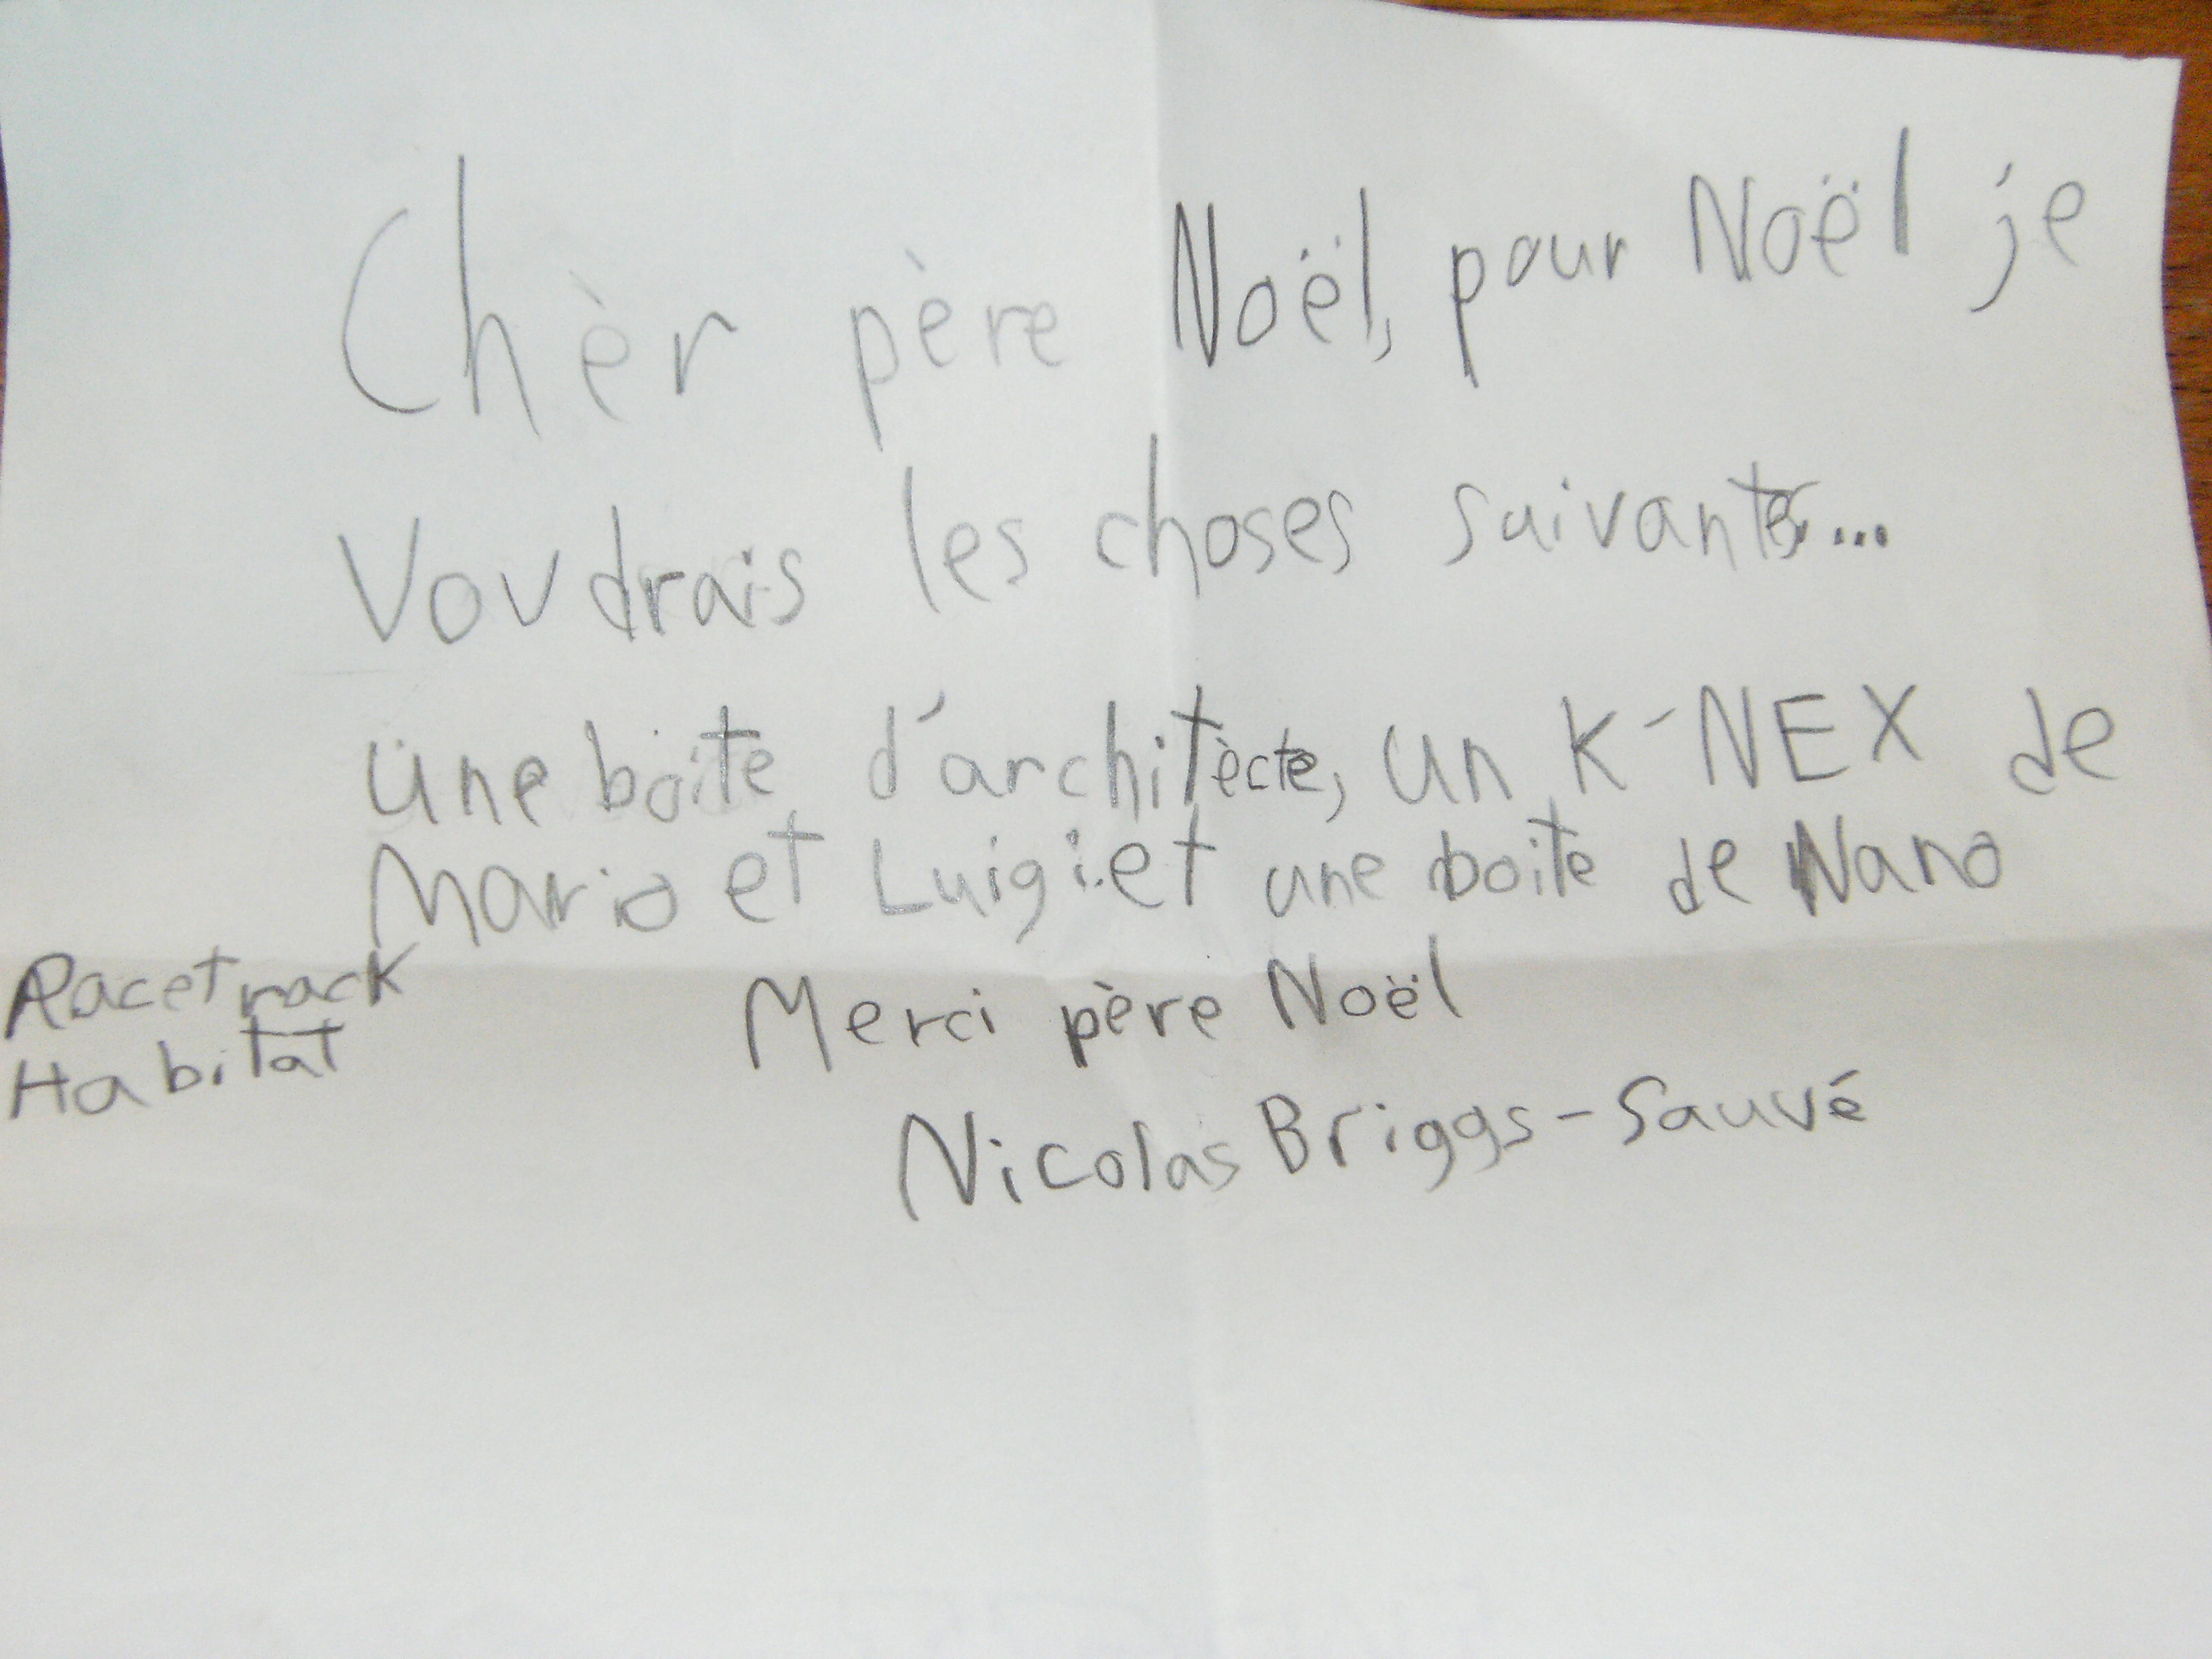 Chèr père Noël, pour Noël je
Voudrais les choses suivantes...
une boite d'architècte, un K-NEX de
Mario et Luigi et une boite de Nano
Racetrack
Habitat
Merci père Noël
Nicolas Briggs-Sauvé